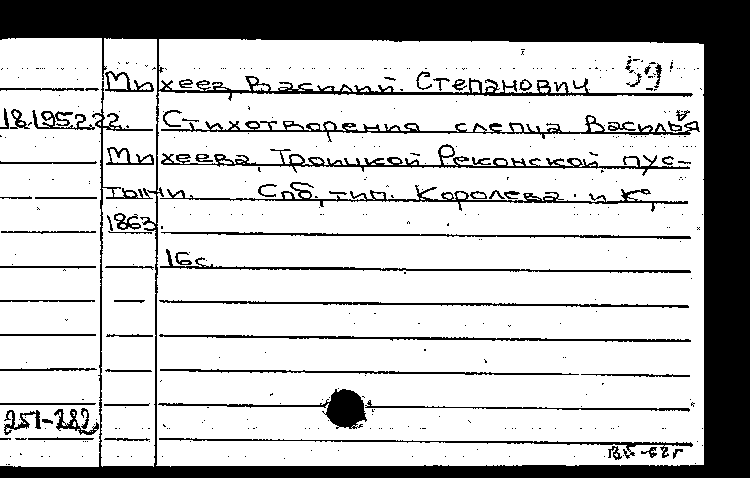 59
Михеев, Василий Степанович
18.195.2.22. Стихотворения слепца Василья
Михеева, Троицкой Реконской пус-
тыни. Спб., тип. Королева и К°,
1863.
16с.
251-282